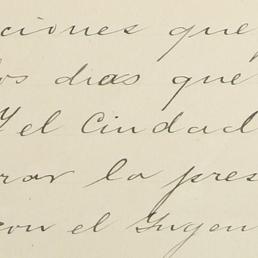 ciones que
los dias que
Y el Ciudad
rar la pres
con el Ingen